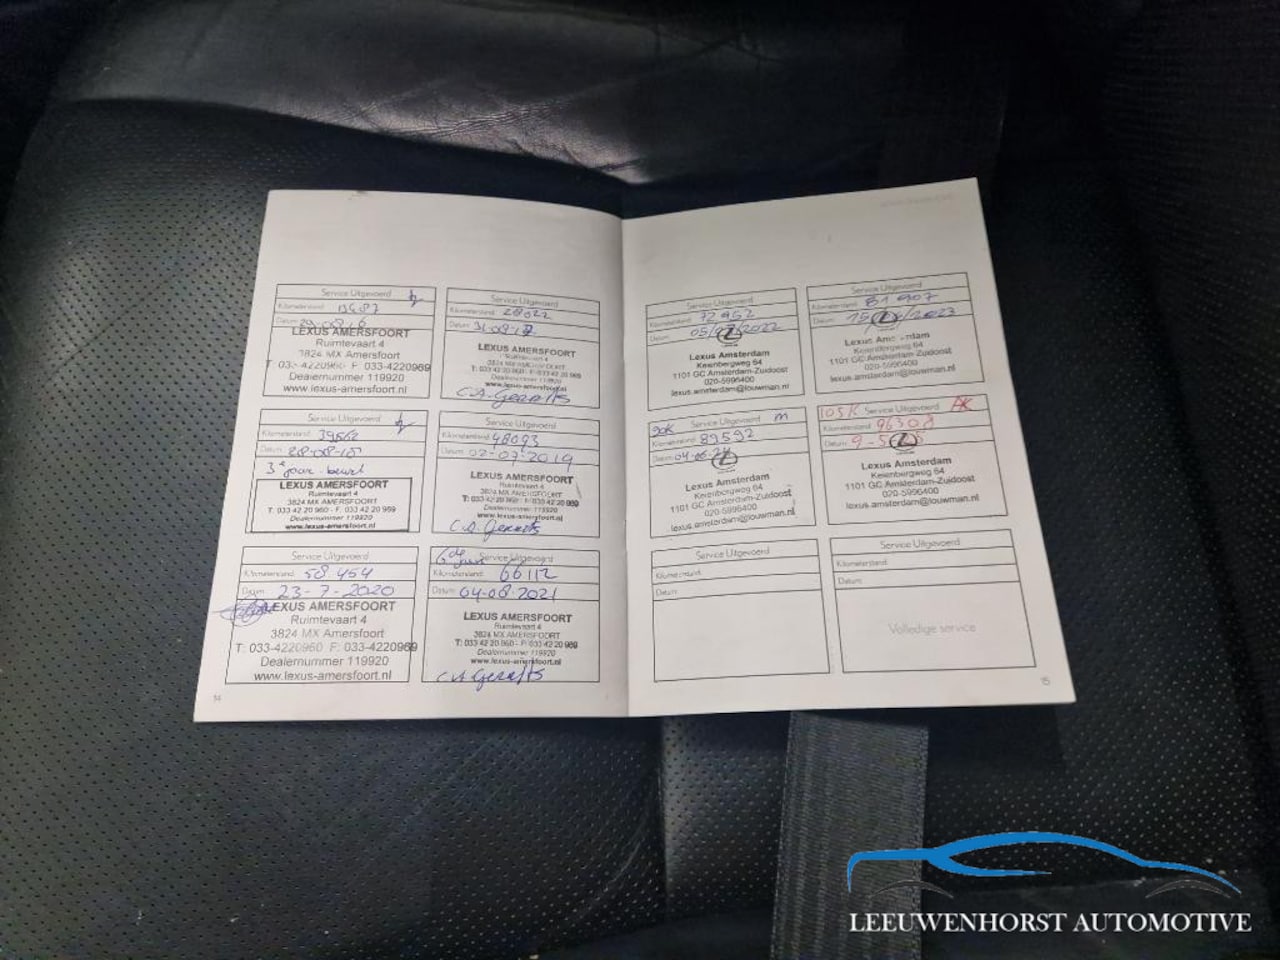 Service Uitgevoerd
Kilometerstand: 13687
Datum:
LEXUS AMERSFOORT
Ruimtevaart 4
3824 MX Amersfoort
T 033-4220960 F 033-4220969
Dealernummer 119920
www.lexus-amersfoort.nl
Service Uitgevoerd
Kilometerstand: 28022
Datum:
LEXUS AMERSFOORT
Ruimtevaart 4
3824 MX AMERSFOORT
T: 033 42 20 960 - F: 033 42 20 969
Dealernummer 119920
www.lexus-amersfoort.nl
C.A. Gerrits
Service Uitgevoerd
Kilometerstand:
Datum:
3e jaar beurt
LEXUS AMERSFOORT
Ruimtevaart 4
3824 MX AMERSFOORT
T: 033 42 20 960 - F: 033 42 20 969
Dealernummer 119920
www.lexus-amersfoort.nl
Service Uitgevoerd
Kilometerstand: 48093
Datum: 02-07-2019
LEXUS AMERSFOORT
Ruimtevaart 4
3824 MX AMERSFOORT
T: 033 42 20 960 - F: 033 42 20 969
Dealernummer 119920
www.lexus-amersfoort.nl
C.A. Gerrits
Service Uitgevoerd
Kilometerstand: 58.454
Datum: 23-7-2020
LEXUS AMERSFOORT
Ruimtevaart 4
3824 MX Amersfoort
T: 033-4220960 F: 033-4220969
Dealernummer 119920
www.lexus-amersfoort.nl
6de jaar Service Uitgevoerd
Kilometerstand: 66112
Datum: 04-08-2021
LEXUS AMERSFOORT
Ruimtevaart 4
3824 MX AMERSFOORT
T: 033 42 20 960 - F: 033 42 20 969
Dealernummer 119920
www.lexus-amersfoort.nl
C.A. Gerrits
14
Service Uitgevoerd
Kilometerstand: 72962
Datum:
Lexus Amsterdam
Keienbergweg 64
1101 GC Amsterdam-Zuidoost
020-5996400
lexus.amsterdam@louwman.nl
Service Uitgevoerd
Kilometerstand: 81907
Datum:
Lexus
Keienbergweg 64
1101 GC Amsterdam-Zuidoost
020-5996400
lexus.amsterdam@louwman.nl
90K Service Uitgevoerd m
Kilometerstand: 89592
Datum:
Lexus Amsterdam
Keienbergweg 64
1101 GC Amsterdam-Zuidoost
020-5996400
lexus.amsterdam@louwman.nl
105K Service Uitgevoerd AK
Kilometerstand: 96308
Datum:
Lexus Amsterdam
Keienbergweg 64
1101 GC Amsterdam-Zuidoost
020-5996400
lexus.amsterdam@louwman.nl
Service Uitgevoerd
Kilometerstand:
Datum:
Service Uitgevoerd
Kilometerstand:
Datum:
Volledige service
15
LEEUWENHORST AUTOMOTIVE